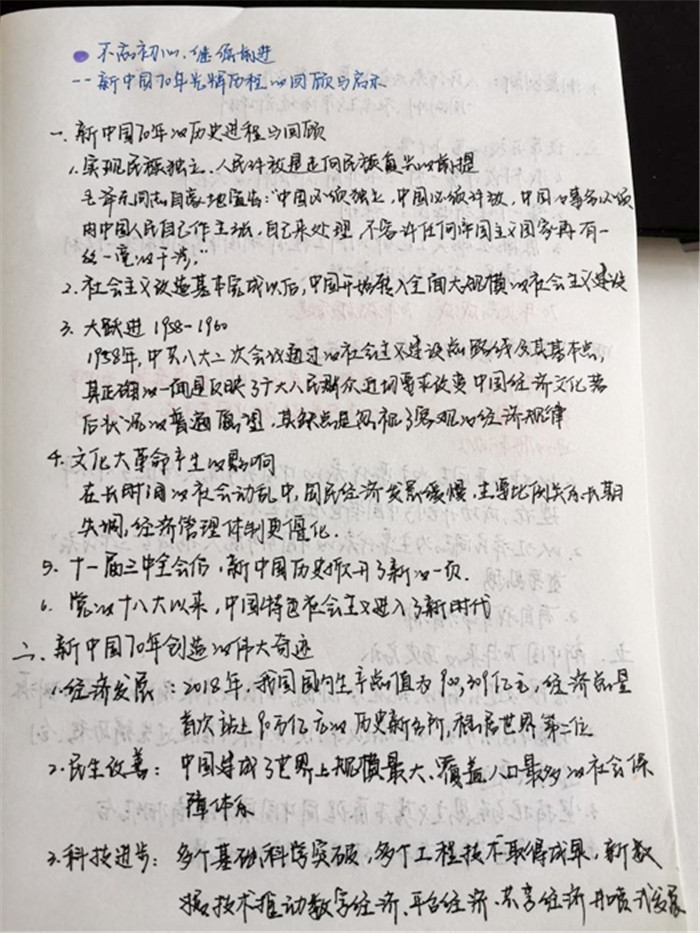 不忘初心、继续前进
--新中国70年光辉历程的回顾与启示
一、新中国70年的历史进程与回顾
1.实现民族独立、人民解放是走向民族复兴的前提
毛泽东同志自豪地宣告:“中国必须独立,中国必须解放,中国的事务必须
由中国人民自己作主张,自己来处理,不容许任何帝国主义国家再有一
丝一毫的干涉。”
2.社会主义改造基本完成以后,中国开始转入全面大规模的社会主义建设
3.大跃进 1958-1960
1958年,中共八大二次会议通过的社会主义建设总路线及其基本点,
其正确的一面是反映了广大人民群众迫切要求改变中国经济文化落
后状况的普遍愿望,其缺点是忽视了客观的经济规律
4.文化大革命产生的影响
在长时间的社会动乱中,国民经济发展缓慢,主要比例关系长期
失调,经济管理体制更僵化.
5.十一届三中全会后,新中国历史掀开了新的一页.
6.党的十八大以来,中国特色社会主义进入了新时代
二、新中国70年创造的伟大奇迹
1.经济发展:2018年,我国国内生产总值为900,309亿元,经济总量
首次站上90万亿元的历史新台阶,稳居世界第二位
2.民生改善:中国建成了世界上规模最大、覆盖人口最多的社会保
障体系
3.科技进步:多个基础科学突破,多个工程技术取得成果,新数
据技术推动数字经济、平台经济、共享经济井喷式发展